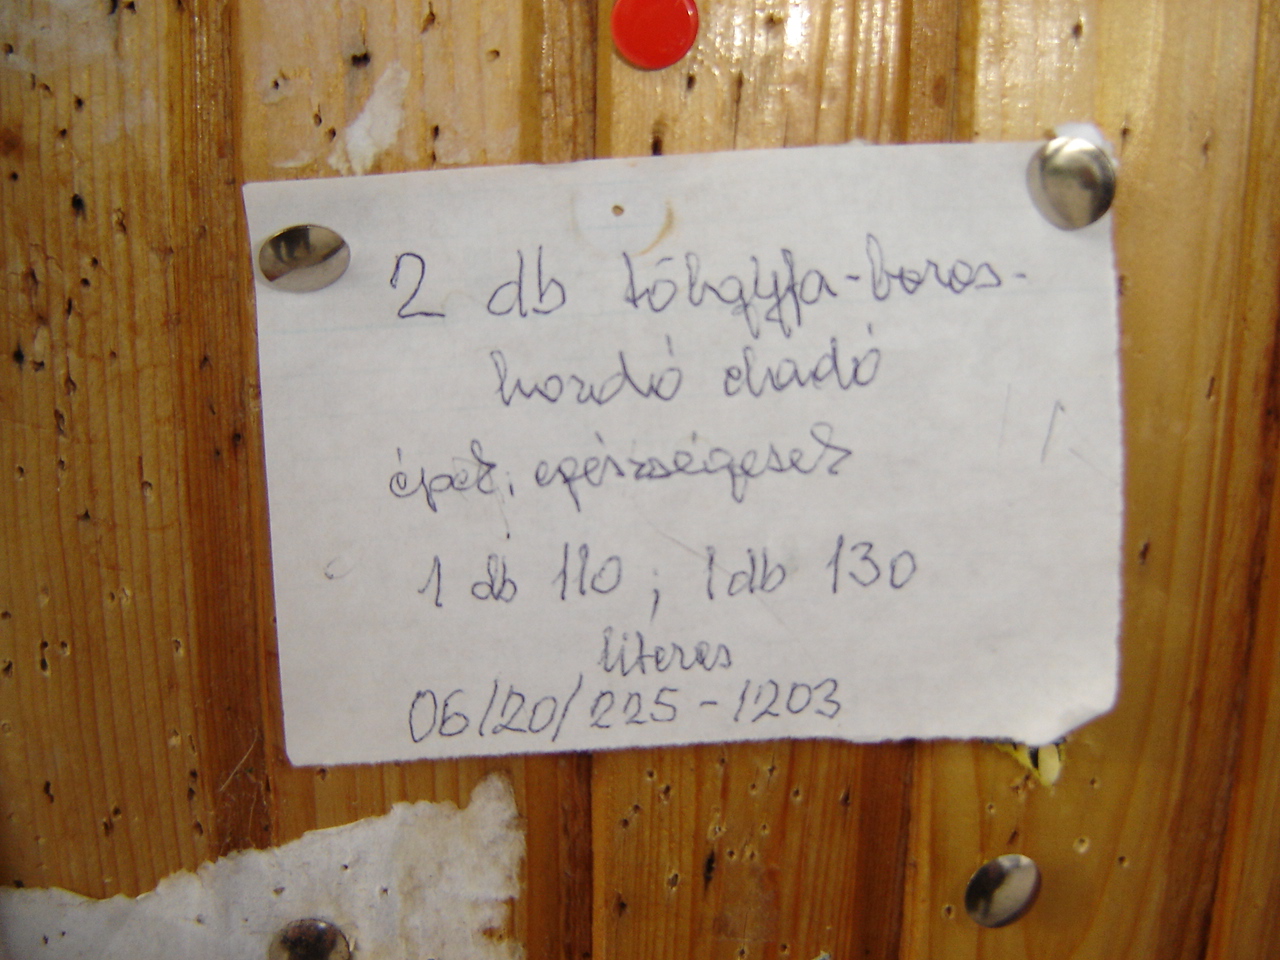 2 db tölgyfa-boros-
hordó eladó
épek, egészségesek
1 db 110 ; 1db 130
literes
06/20/225-1203